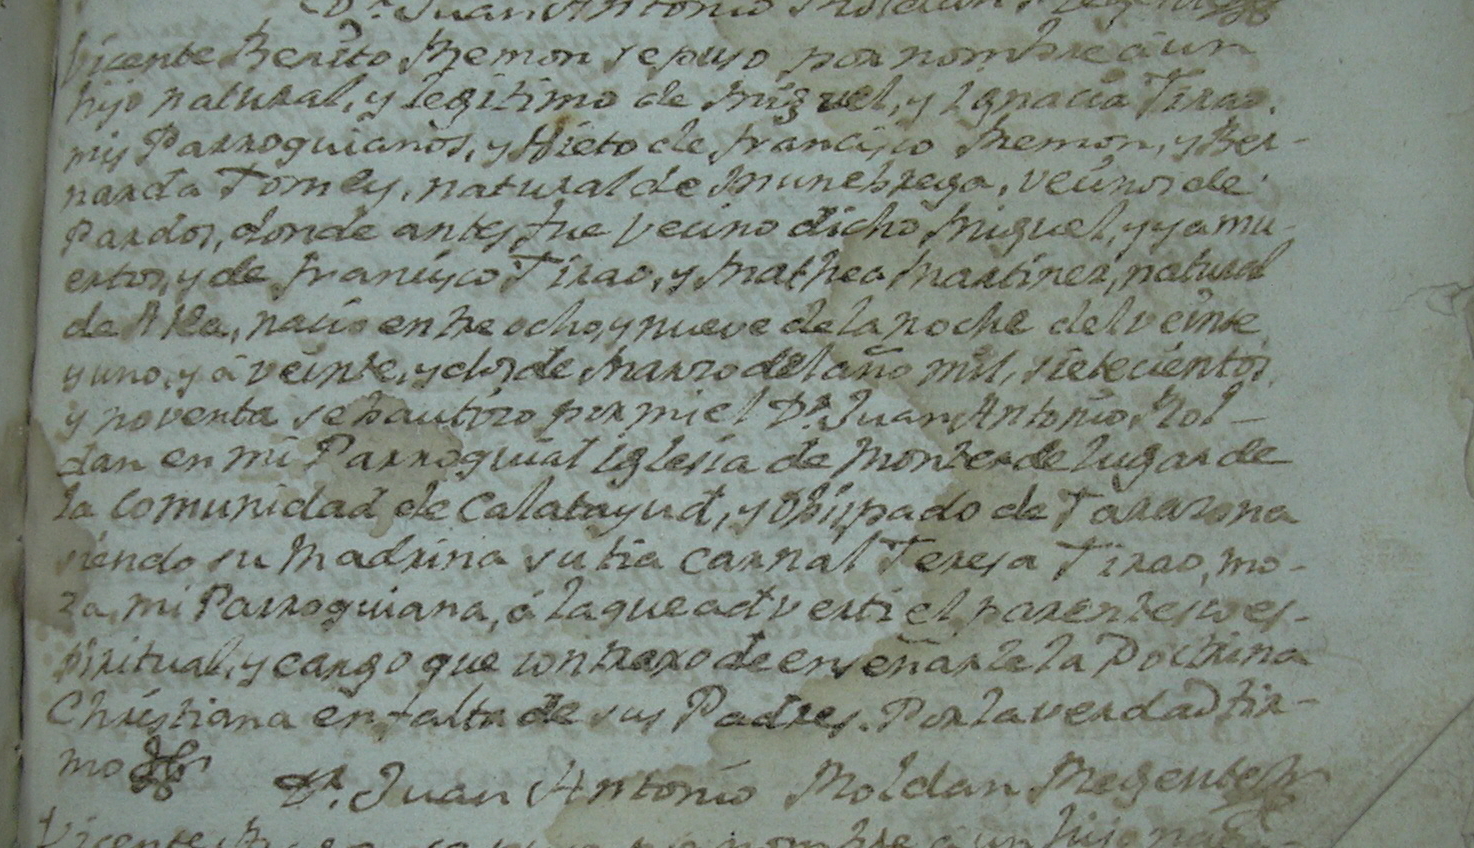 Dr. Juan Antonio Roldan Regente
Vicente Benito Remon se puso por nombre a un
hijo natural, y legitimo de Miguel, y Ignacia Tirao.
mis Parroquianos, y Nieto de Francisco Remon, y Ber-
narda Tomey, natural de Munebrega, vecinos de
Pardos, donde antes fue Vecino dicho Miguel, y ya mu-
ertos, y de Francisco Tirao, y Mathea Martinez, natural
de nacio entre ocho y nueve de la noche del veinte
y uno, y à veinte, y dos de Marzo del año mil, sietecientos,
y noventa se bautizo por mi el Dr. Juan Antonio Rol-
dan en mi Parroquial iglesia de Monterde lugar de
la Comunidad de Calatayud, y Obispado de Tarazona
siendo su Madrina su tia carnal Teresa Tirao, mo-
za, mi Parroquiana, á la que advertí el parentesco es-
piritual, y cargo que contraxo de enseñarle la Doctrina
Christiana en falta de sus Padres. Por la verdad fir-
mo
Dr. Juan Antonio Roldan Regente
Vicente se puso por nombre a un hijo natu-